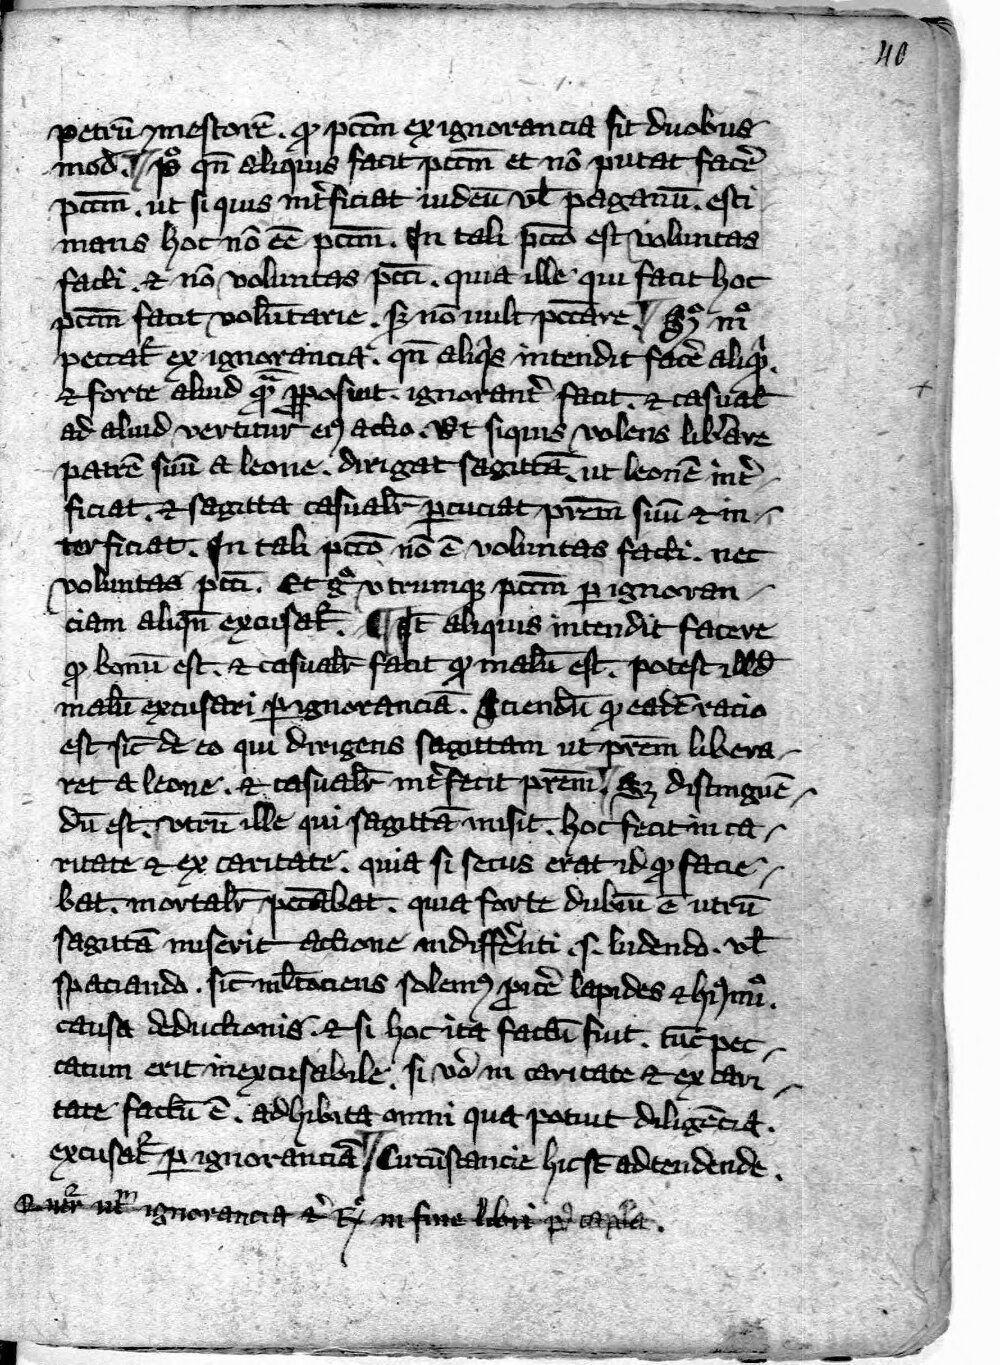 40
petrū ymestorē. ꝙ pccm̄ ex ignorancia fit duobus
mod̄. pº qn̄ aliquis facit pccm̄ et nō putat facē
pccm̄. ut si quis int̄ficiat iudeū vl̄ paganū. esti
mans hoc nō ēe pccm̄. In tali pcco̅ est voluntas
facti. ⁊ nō voluntas pccī. quia ille qui facit hoc
pccm̄ facit volūtarie. sꝫ nō uult pccāre. mº
peccat̄ ex ignorancia. qn̄ aliqͥs intendit facē aliqͩ.
⁊ forte aliud qͣ̄ ꝓposuit. ignorant̄ facit. ⁊ casual̄
ad aliud vertitur eiꝯ actio. Vt siquis volens libāre
patrē suū a leone. dirigat sagittā. ut leonē int̄
ficiat. ⁊ sagitta casualr̄ ꝑcuciat pr̄em suū ⁊ in
terficiat. In tali pcco̅ nō ē voluntas facti. nec
voluntas pccī. Et gͦ vtrumqꝫ pccm̄ ꝑ ignoran
ciam aliqn̄ excusat̄. ¶ It̄ aliquis intendit facere
ꝙ bonū est. ⁊ casualr̄ facit ꝙ malū est. potest illḋ
malū excusari ꝑ ignoranciā. Sciendū ꝙ eadē racio
est sic̄ de eo qui dirigens sagittam ut pr̄em libera
ret a leone. ⁊ casualr̄ int̄fecit pr̄em. Sꝫ distinguē
dū est. vtrū ille qui sagittā misit. hoc fecit in ca
ritate ⁊ ex caritate. quia si secus erat id ꝙ facie
bat. mortalr̄ pccābat. quia forte dubiū ē utrū
sagittā miserit actione indiffēnti .s. ludendo. vl̄
spaciando. sic̄ ml̄tociens solemꝯ ꝓicē lapides ⁊ hiꝯmōi.
causa deductionis. ⁊ si hoc ita factū fuit. tūc pec
catum erit inexcusabile. si vō in caritate ⁊ ex cari
tate factū ē. adhibita omni qua potuit diligēcia.
excusat̄ ꝑ ignoranciā. Circūstancie hic st̄ adtendende.
ignorancia in fine libri